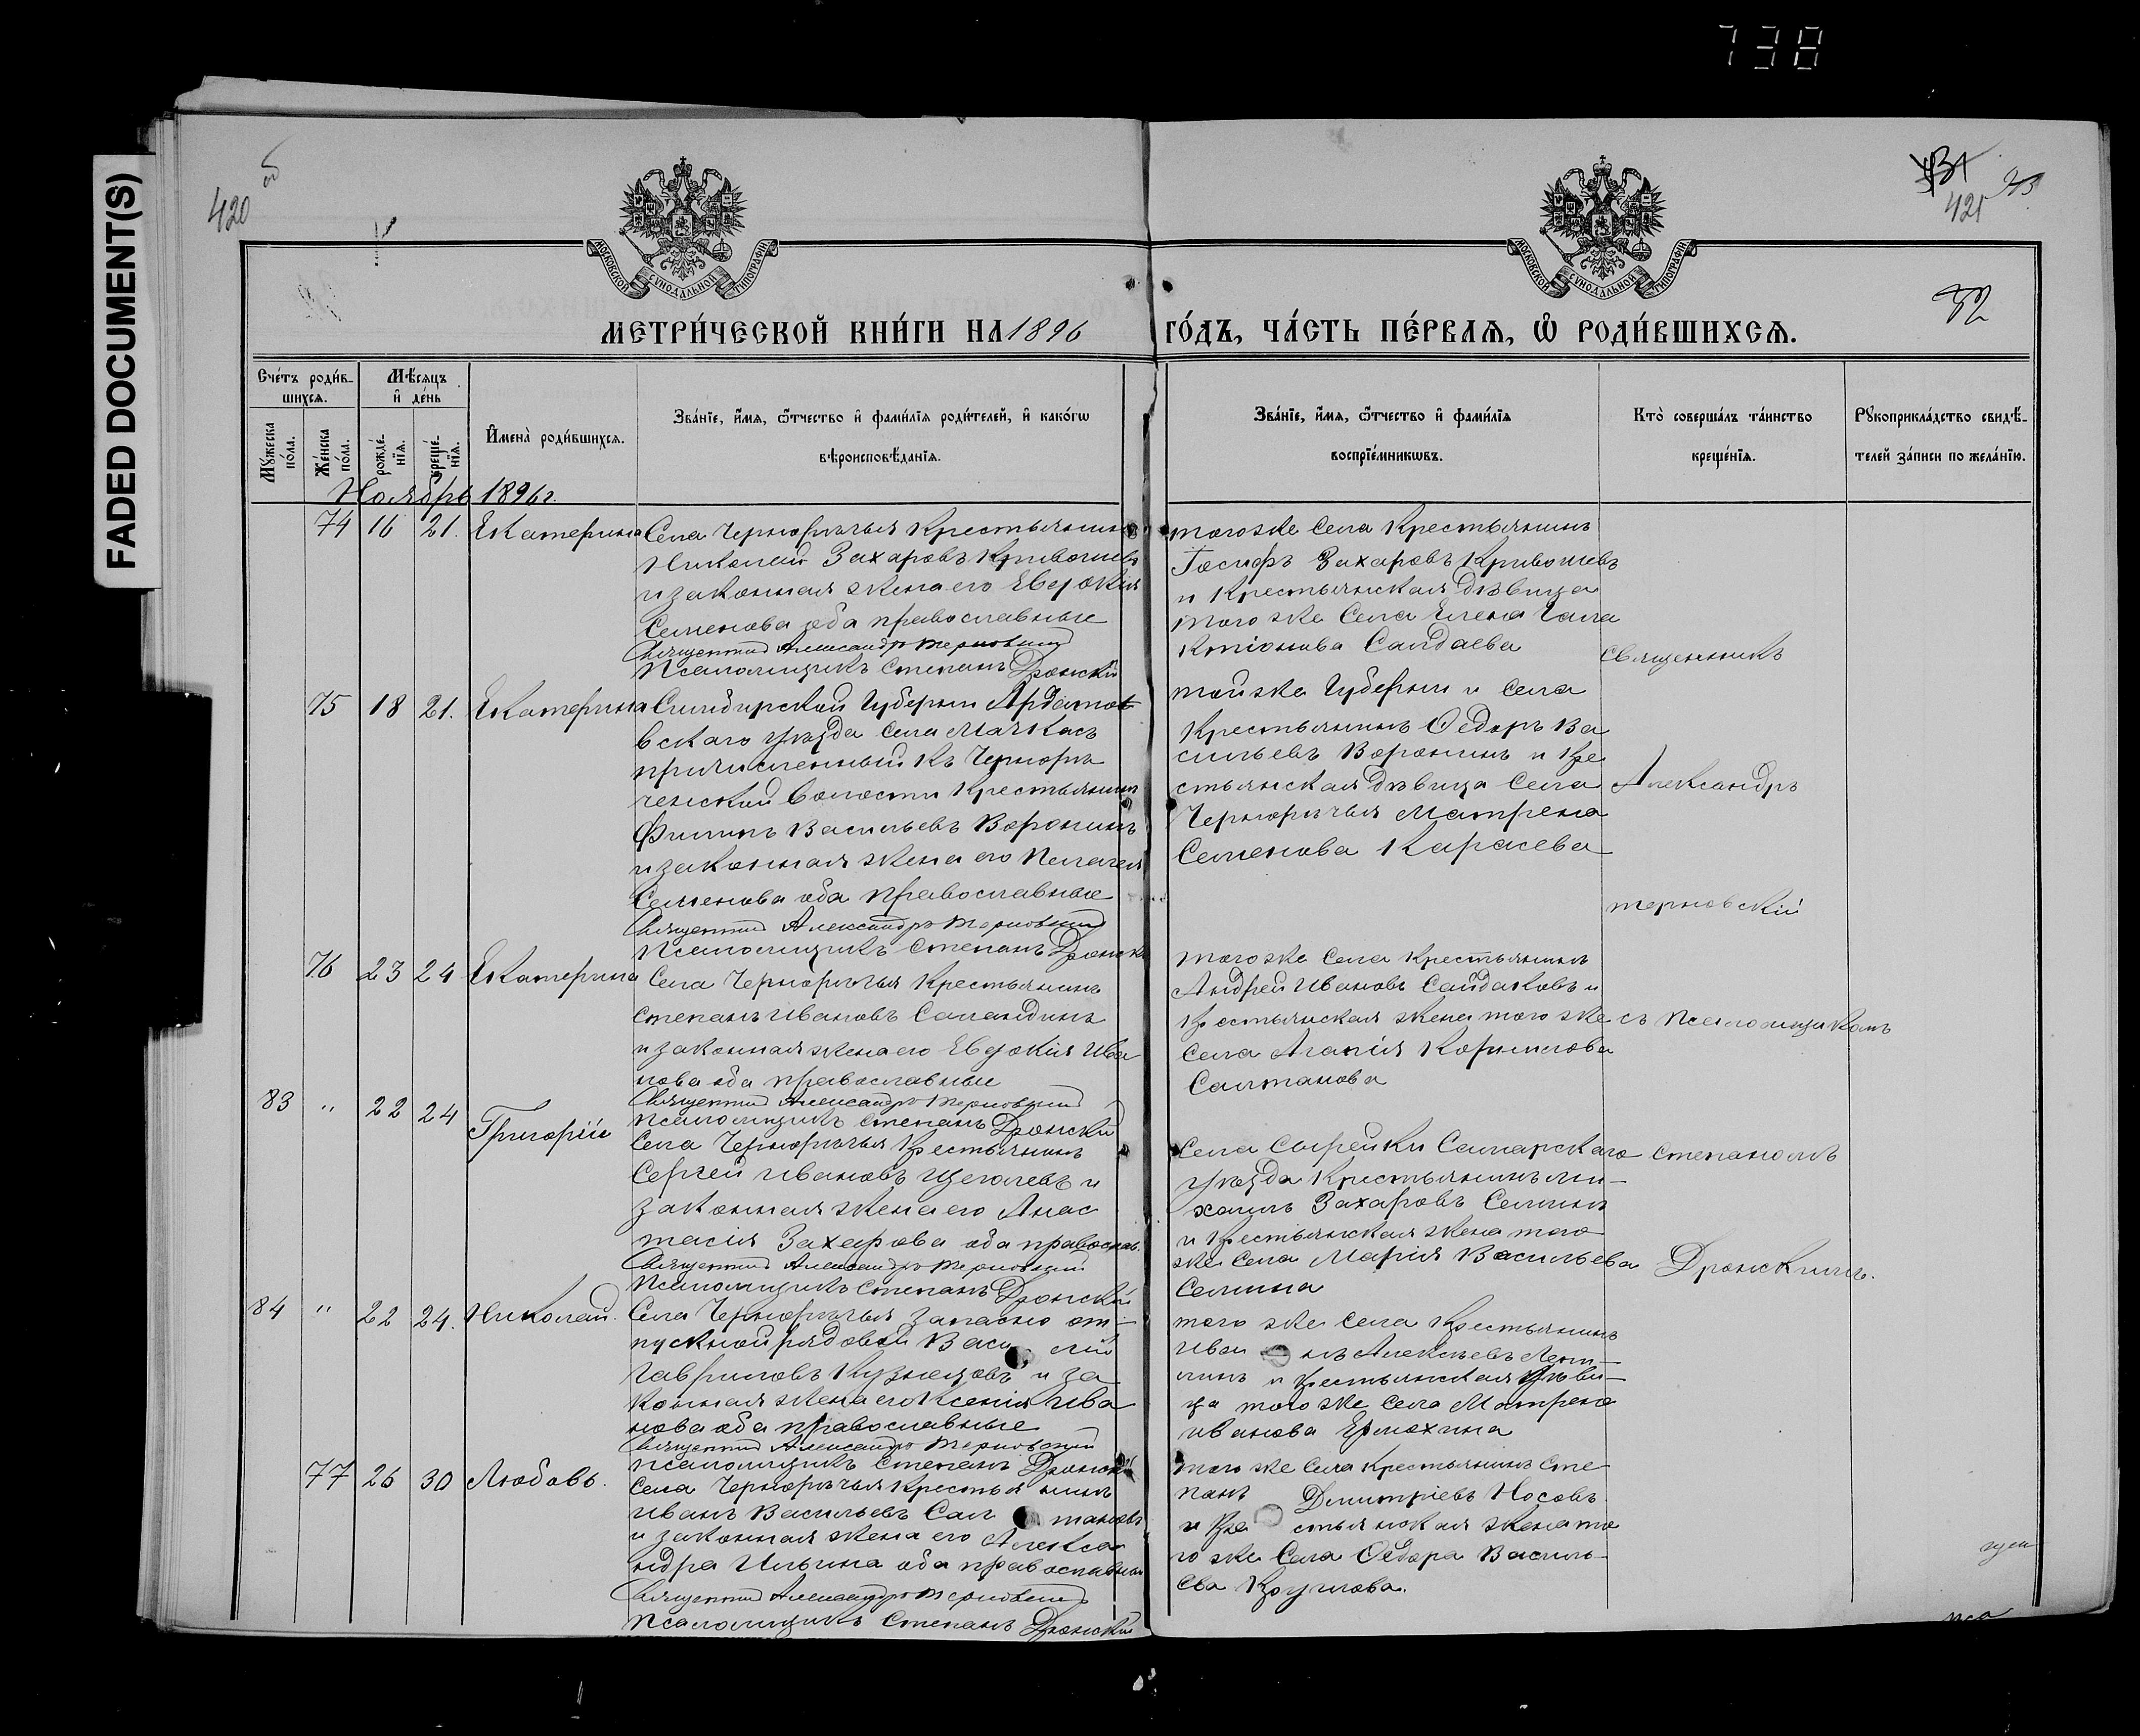 738
FADED DOCUMENT(S)
420
об
421
52
МОСКОВСКОЙ СѴНОДАЛЬНОЙ ТИПОГРАФІИ
МОСКОВСКОЙ СѴНОДАЛЬНОЙ ТИПОГРАФІИ
МЕТРИ́ЧЕСКОЙ КНИ́ГИ НА 1896 ГО́ДЪ, ЧА́СТЬ ПЕ́РВАѦ, Ѡ҆ РОДИ́ВШИХСѦ.
Сче́тъ роди́в-
шихсѧ.
Мѣ́сѧцъ
и҆ де́нь
Мꙋ́жеска
по́ла.
Же́нска
по́ла.
рожде́-
нїѧ.
креще́-
нїѧ.
И҆мена̀ роди́вшихсѧ.
Зва́нїе, и҆́мѧ, ѻ҆́тчество и҆ фами́лїѧ роди́телей, и҆ како́гѡ
вѣроисповѣ́данїѧ.
Зва́нїе, и҆́мѧ, ѻ҆́тчество и҆ фами́лїѧ
воспрїе́мникѡвъ.
Кто̀ соверша́лъ та́инство
креще́нїѧ.
Рꙋкоприкла́дство свидѣ́-
телей за́писи по жела́нїю.
Ноябрь 1896 г.
74 16 21. Екатерина
Села Чернорѣчья Крестьянинъ
Николай Захаровъ Кривошеевъ
и законная жена его Евдокія
Семенова оба православные
Священникъ Александръ Терновскій
Псаломщикъ Степанъ Дронскій
тогоже Села Крестьянинъ
Іосифъ Захаровъ Кривошевъ
и Крестьянская дѣвица
того же Села Елена Гала
ктіонова Салдаева
75 18 21. Екатерина
Симбирской Губерніи Ардатов
вскаго уѣзда Села Мачкасъ
причисленный къ Чернорѣ
ченской Волости Крестьянинъ
Филипъ Васильевъ Воронинъ
и законная жена его Пелагея
Семенова оба православные
Священникъ Александръ Терновскій
Псаломщикъ Степанъ Дронскій
тойже Губерніи и Села
Крестьянинъ Ѳедоръ Ва
сильевъ Воронинъ и Кре
стьянская дѣвица Села
Чернорѣчья Матрена
Семенова Карасева
76 23 24 Екатерина
Села Чернорѣчья Крестьянинъ
Степанъ Ивановъ Саландинъ
и законная жена его Евдокія Ива
нова оба православные
Священникъ Александръ Терновскій
Псаломщикъ Степанъ Дронскій
тогоже Села Крестьянинъ
Андрей Ивановъ Сайдаковъ и
Крестьянская жена того же
Села Агапія Корнилова
Салтанова
83 " 22 24 Григорій
Села Чернорѣчья Крестьянинъ
Сергей Ивановъ Щеголевъ и
законная жена его Анас
тасія Захарова оба православ.
Священникъ Александръ Терновскій
Псаломщикъ Степанъ Дронскій
Села Сырейки Самарскаго
уѣзда Крестьянинъ Ми-
хаилъ Захаровъ Семинъ
и Крестьянская жена того
же Села Марія Васильева
Семина
84 " 22 24. Николай.
Села Чернорѣчья Запасно от-
пускной рядовой Василій
Гавриловъ Кузнецовъ и за
конная жена его Ксенія Ива
нова оба православные
Священникъ Александръ Терновскій
Псаломщикъ Степанъ Дронскій
того же Села Крестьянинъ
Алексѣевъ
и Крестьянская дѣви-
ца того же Села Матрена
Иванова Ермохина
77 26 30 Любовь.
Села Чернорѣчья Крестьянинъ
Иванъ Васильевъ Салтановъ
и законная жена его Алекса
ндра Ильина оба православные
Священникъ Александръ Терновскій
Псаломщикъ Степанъ Дронскій
того же Села Крестьянинъ Сте
панъ Дмитріевъ Носовъ
и Крестьянская жена то
го же Села Ѳедора Василь-
ева
Священникъ
Александръ
Терновскій
съ Псаломщикомъ
Степаномъ
Дронскимъ.